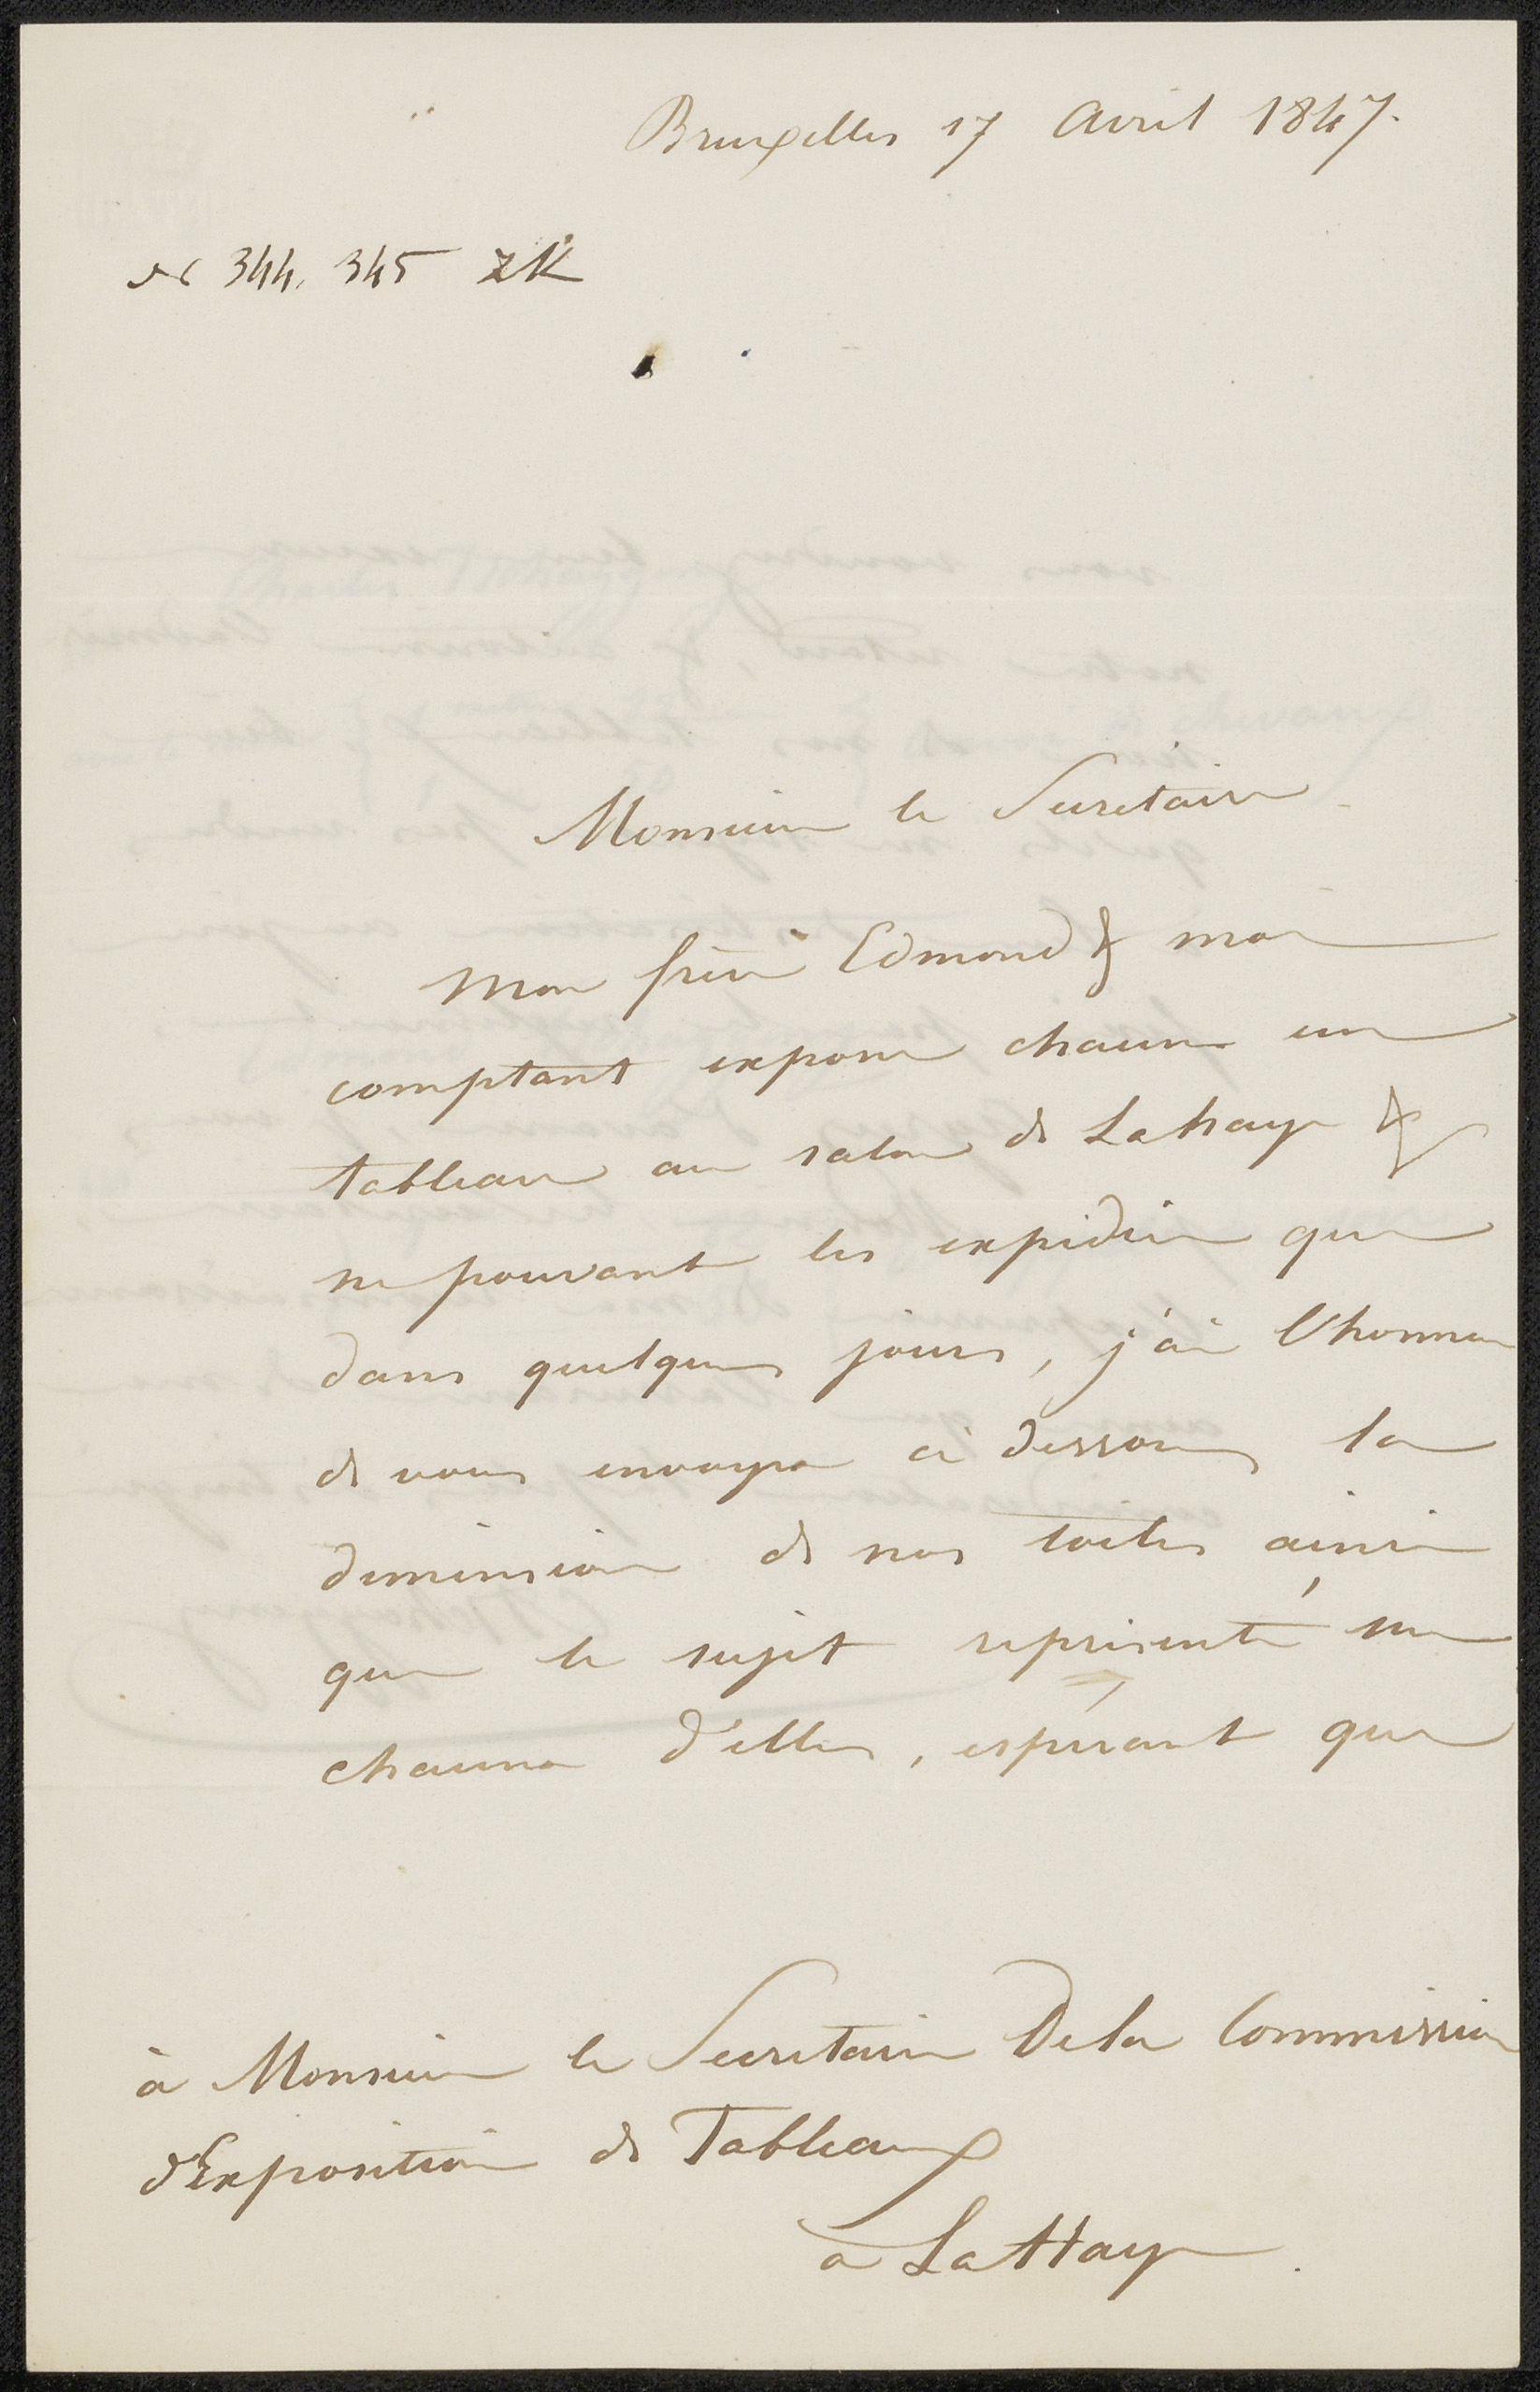 Bruxelles 17 Avril 1847.
N 344. 345 ZK
Monsieur le Secretaire
Mon frère Edmond & moi
comptant exposer chacun un
tableau au salon de La haye &
ne pouvant les expédier que
dans quelques jours, j'ai l'honneur
de vous envoyer ci dessous la
dimension de nos toiles ainsi
que le sujet représenté sur
chacune d'elles, espérant que
à Monsieur le Secretaire De la Commission
d'Exposition de Tableaux
à La Haye.